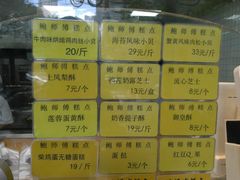 鲍师傅糕点
牛肉味烘焙鸡肉松小贝
20/斤
鲍师傅糕点
海苔风味小贝
29元/斤
鲍师傅糕点
蟹黄风味肉松小贝
33元/斤
鲍师傅糕点
土凤梨酥
7元/个
鲍师傅糕点
奶露芝士
13元/盒
鲍师傅糕点
流心芝士
8元/个
鲍师傅糕点
莲蓉蛋黄酥
7元/个
鲍师傅糕点
奶香提子酥
19元/斤
鲍师傅糕点
御皇酥
8元/个
鲍师傅糕点
柴鸡蛋无糖蛋糕
19/斤
鲍师傅糕点
蛋挞
3元/个
鲍师傅糕点
红豆Q.派
6元/个